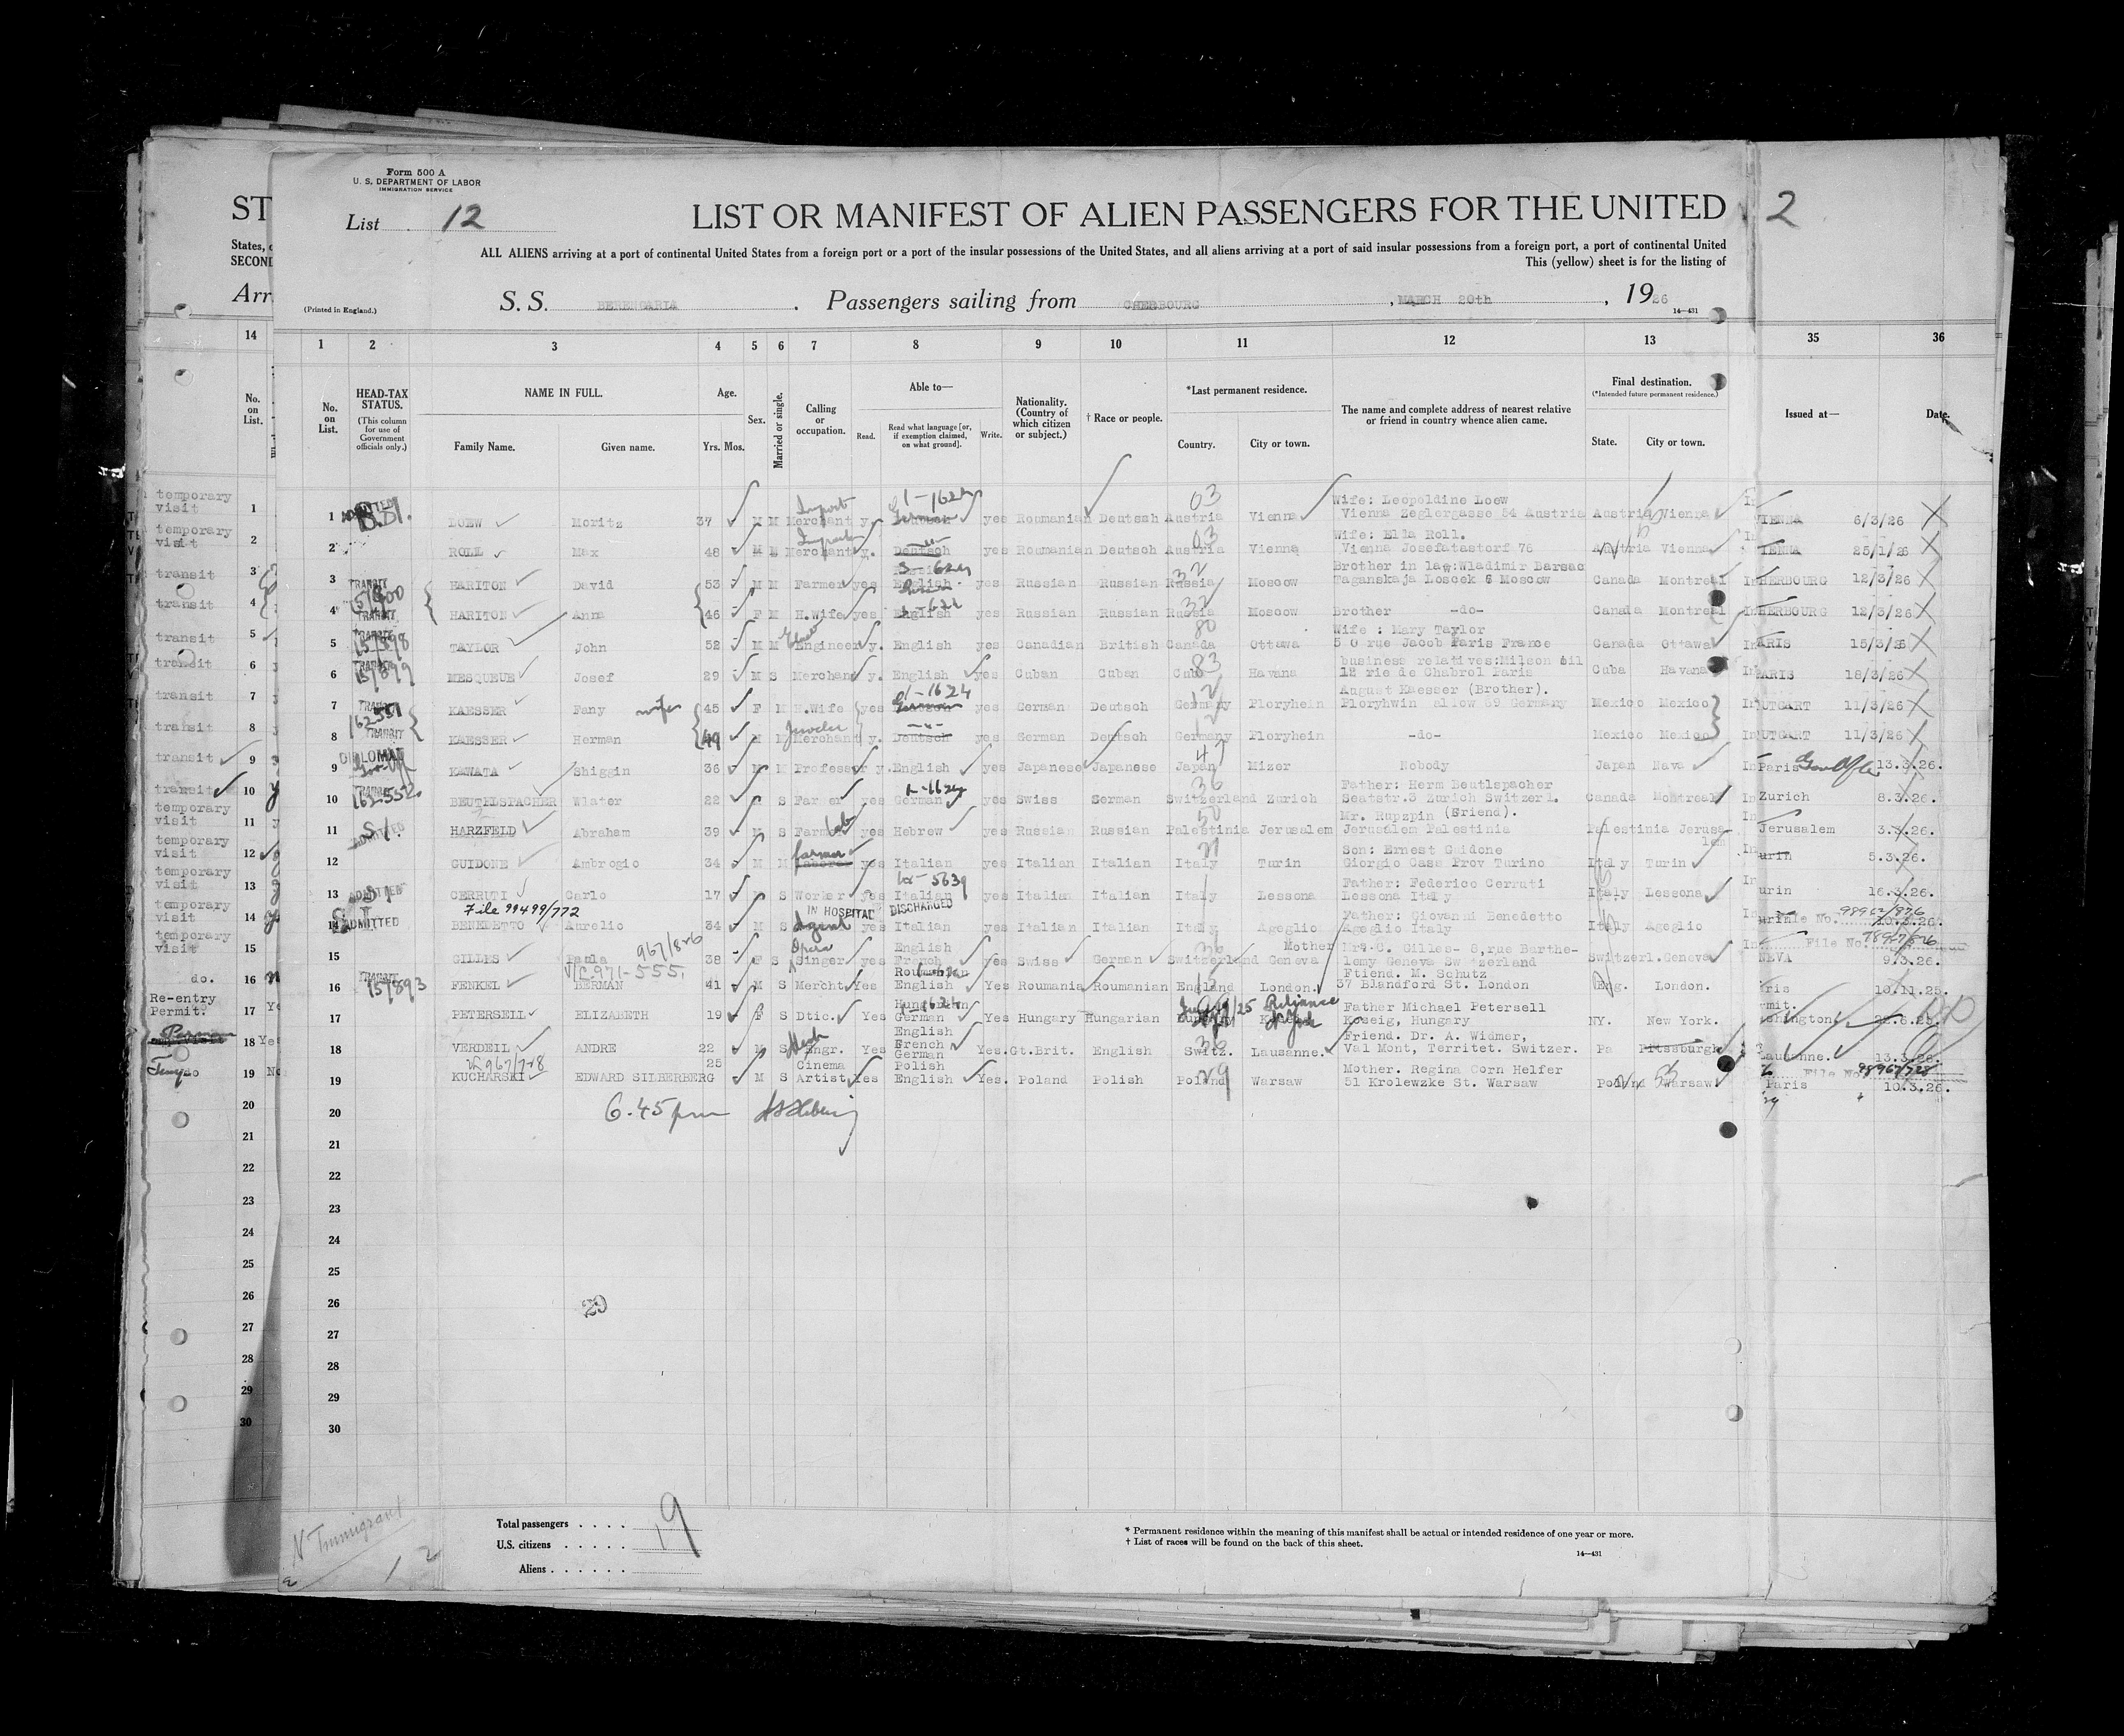 Form 500 A
U. S. DEPARTMENT OF LABOR
IMMIGRATION SERVICE
List 12
LIST OR MANIFEST OF ALIEN PASSENGERS FOR THE UNITED
2
ST
States,
SECOND
Arr
ALL ALIENS arriving at a port of continental United States from a foreign port or a port of the insular possessions of the United States, and all aliens arriving at a port of said insular possessions from a foreign port, a port of continental United
This (yellow) sheet is for the listing of
(Printed in England.)
S. S. BERENGARIA. Passengers sailing from CHERBOURG, MARCH 20th, 1926
14—431
14 1 2 3 4 5 6 7 8 9 10 11 12 13 35 36
No. on List.
No. on List.
HEAD-TAX STATUS.
(This column for use of Government officials only.)
NAME IN FULL.
Family Name. Given name.
Age.
Yrs. Mos.
Sex.
Married or single.
Calling or occupation.
Able to—
Read. Read what language [or, if exemption claimed, on what ground]. Write.
Nationality. (Country of which citizen or subject.)
† Race or people.
*Last permanent residence.
Country. City or town.
The name and complete address of nearest relative or friend in country whence alien came.
Final destination.
(*Intended future permanent residence.)
State. City or town.
Issued at—
Date.
temporary visit 1 1 LOEW Moritz 37 M M Import Merchant y. German yes Roumanian Deutsch Austria 03 Vienna Wife: Leopoldine Loew
Vienna Zeglergasse 54 Austria Austria Vienna VIENNA 6/3/26
temporary visit 2 2 ROLL Max 48 M M Import Merchant y. Deutsch yes Roumanian Deutsch Austria 03 Vienna Wife: Ella Roll.
Vienna Josefatastorf 76 Austria Vienna IENNA 25/1/26
transit 3 3 TRANSIT HARITON David 53 M M Farmer yes English yes Russian Russian Russia 32 Moscow Brother in law:Wladimir Barsac
Taganskaja Loscek 6 Moscow Canada Montreal HERBOURG 12/3/26
transit 4 4 TRANSIT HARITON Anna 46 F M H.Wife yes English yes Russian Russian Russia 32 Moscow Brother -do- Canada Montreal HERBOURG 12/3/26
transit 5 5 TRANSIT 151898 TAYLOR John 52 M M Engineer y. English yes Canadian British Canada 80 Ottawa Wife : Mary Taylor
5 0 rue Jacob Paris France Canada Ottawa ARIS 15/3/26
transit 6 6 TRANSIT 151899 MESQUEUE Josef 29 M S Merchant y. English yes Cuban Cuban Cuba 83 Havana business relatives:Milson oil
12 rie de Chabrol Paris Cuba Havana PARIS 18/3/26
transit 7 7 TRANSIT KAESSER Fany wife 45 F M H.Wife yes German yes German Deutsch Germany 12 Floryhein August Kaesser (Brother).
Floryhwin allow 69 Germany Mexico Mexico UTGART 11/3/26
transit 8 8 162551 TRANSIT KAESSER Herman 49 M M Jeweler Merchant y. Deutsch yes German Deutsch Germany 12 Floryhein -do- Mexico Mexico UTGART 11/3/26
transit 9 9 DIPLOMAT KAWATA Shiggin 36 M M Professor y. English yes Japanese Japanese Japan 47 Mizer Nobody Japan Nava Paris 13.3.26.
transit 10 10 TRANSIT 162552 BEUTELSPACHER Wlater 22 M S Farmer yes German yes Swiss German Switzerland 36 Zurich Father: Herm Beutlspacher
Seatstr.3 Zurich Switzerl. Canada Montreal Zurich 8.3.26.
temporary visit 11 11 ADMITTED HARZFELD Abraham 39 M S Farmer yes Hebrew yes Russian Russian Palestinia 50 Jerusalem Mr. Rupzpin (Sriend).
Jerusalem Palestinia Palestinia Jerusalem Jerusalem 3.3.26.
temporary visit 12 12 GUIDONE Ambrogio 34 M M farmer yes Italian yes Italian Italian Italy 21 Turin Son: Ernest Guidone
Giorgio Cass Prov Turino Italy Turin urin 5.3.26.
temporary visit 13 13 ADMITTED CERRUTI Carlo 17 M S Worker yes Italian yes Italian Italian Italy Lessona Father: Federico Cerruti
Lessona Italy Italy Lessona urin 16.3.26.
File 99499/772 IN HOSPITAL DISCHARGED
temporary visit 14 14 S I ADMITTED BENEDETTO Aurelio 34 M S Agent yes Italian yes Italian Italian Italy Ageglio Father: Giovanni Benedetto
Ageglio Italy Italy Ageglio urin File No. 10.3.26.
temporary visit 15 15 GILLES Paula 967/826 V/C-971-555. 38 F S Opera Singer yes English French yes Swiss German Switzerland 36 Geneva Mother Mrs.C. Gilles- 8,rue Barthe-
lemy Geneva Switzerland Switzerl. Geneva File No. NEVA 9.3.26.
do. 16 16 TRANSIT 151893 FENKEL HERMAN 41 M S Mercht. Yes Roumanian English Yes Roumania Roumanian England London. Ftiend. M. Schutz
37 Blandford St. London Eng. London. aris 10.11.25.
Re-entry Permit. 17 17 PETERSELL ELIZABETH 19 F S Dtic. Yes Hungarian German Yes Hungary Hungarian Reliance Father Michael Petersell
Koseig, Hungary NY. New York. rmit. shington
18 18 VERDEIL ANDRE 22 M S Mech Engr. Yes English French German Yes. Gt.Brit. English Switz. 36 Lausanne. Friend. Dr. A. Widmer,
Val Mont, Territet. Switzer. Pa Pittsburgh Lausanne. 13.3.26.
19 19 KUCHARSKI EDWARD SILBERBERG 25 M S Cinema Artist Yes Polish English Yes. Poland Polish Poland 29 Warsaw Mother. Regina Corn Helfer
51 Krolewzke St. Warsaw Poland Warsaw File No. Paris 10.3.26.
20 20 6.45 pm
21 21
22 22
23 23
24 24
25 25
26 26
27 27
28 28
29 29
30 30
Total passengers . . . . 19
U.S. citizens . . . . .
Aliens . . . . . .
* Permanent residence within the meaning of this manifest shall be actual or intended residence of one year or more.
† List of races will be found on the back of this sheet.
14—431
N Immigrant
12